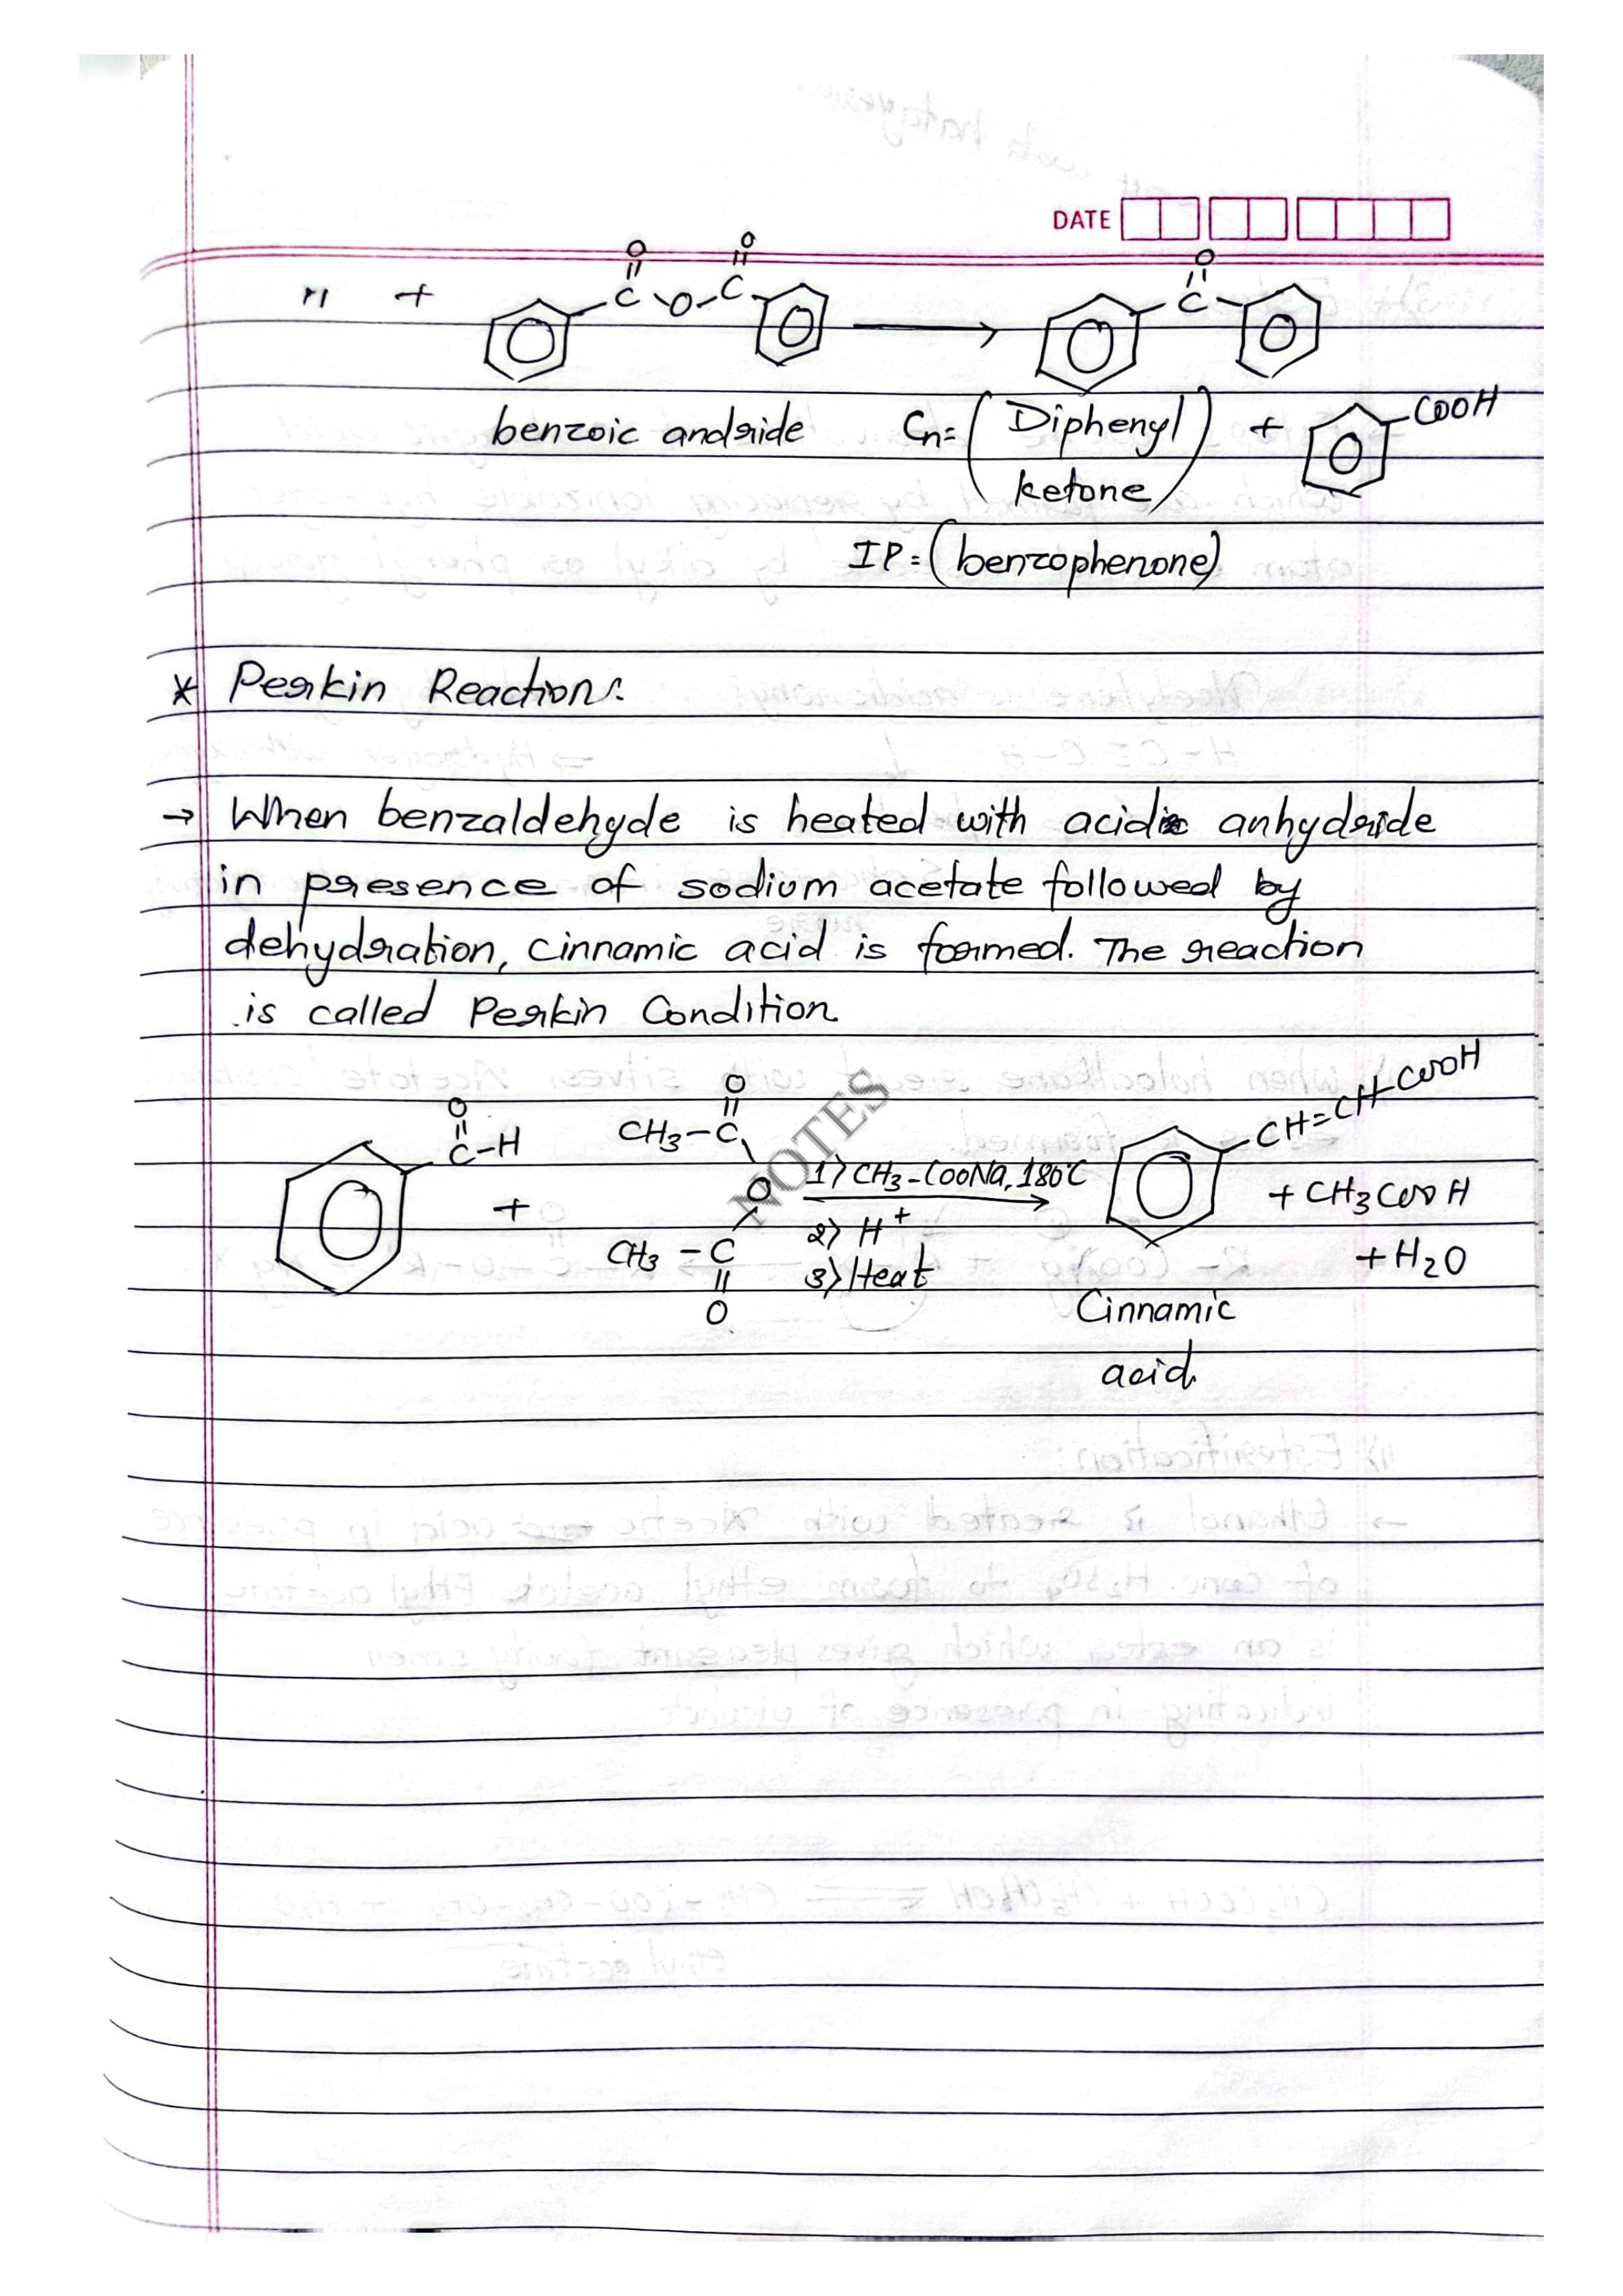 DATE
" +
O O
C O C
O
C
benzoic andride Cn= (Diphenyl ketone) + COOH
IP = (benzophenone)
* Perkin Reaction:
→ When benzaldehyde is heated with acid anhydride
in presence of sodium acetate followed by
dehydration, cinnamic acid is formed. The reaction
is called Perkin Condition
O
C-H
+
O
CH3-C
O
CH3-C
O
NOTES
1) CH3-COONa, 180°C
2) H+
3) Heat
CH=CH-COOH
+ CH3COOH
+ H2O
Cinnamic
acid